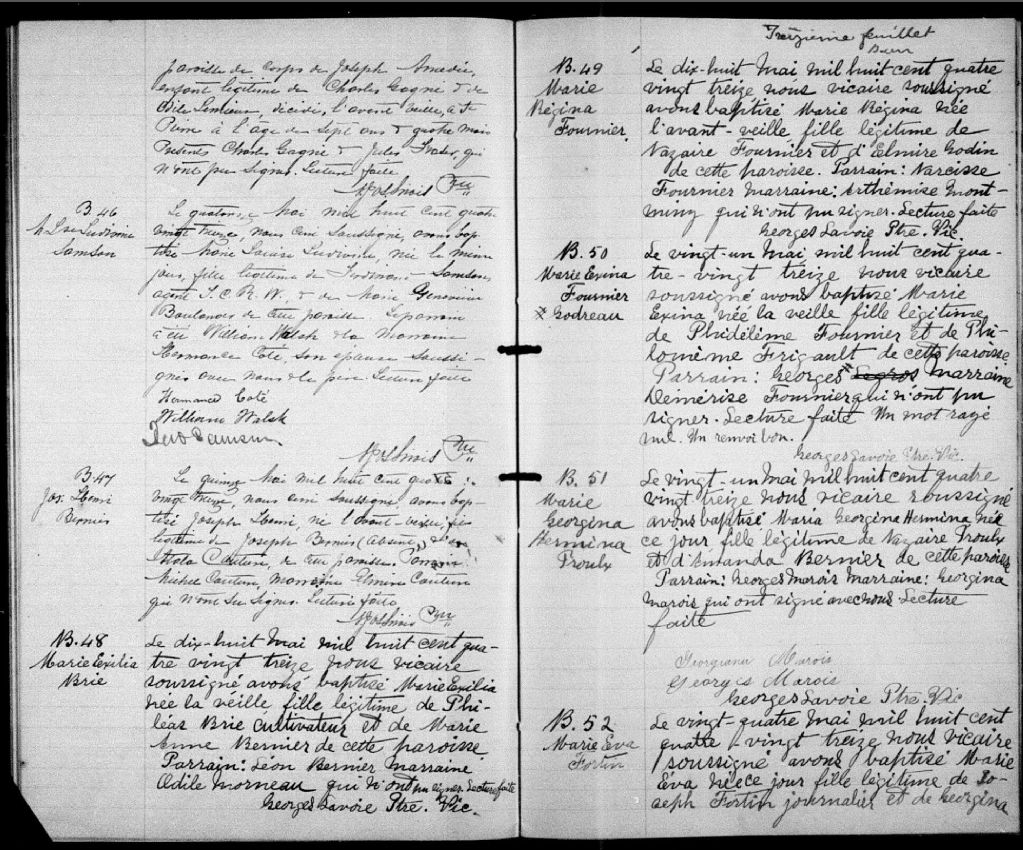 paroisse le corps de Joseph Amédée,
enfant légitime de Charles Gagné & de
décédé, l'avant veille, à St
à l'âge de sept ans & quatre mois
Présents Charles Gagné & Jules qui
n'ont pu signer. Lecture faite
Ptre
B 46
M. Lse Ludivine
Samson
Le quatorze Mai mil huit cent quatre
vingt treize, nous curé soussigné, avons bap-
tisé Marie Louise Ludivine, née le même
jour, fille légitime de Ferdinand Samson,
agent I. C. R. W. & de Marie Geneviève
Boulanger de cette paroisse. Le parrain
a été William Walsh & la marraine
Hermance Coté, son épouse soussi-
gnés avec nous & le père. Lecture faite
Hermance Coté
William Walsh
Ferd Samson
Ptre
B. 47
Jos. Henri
Bernier
Le quinze Mai mil huit cent quatre
vingt treize, nous curé soussigné, avons bap-
tisé Joseph Henri, né l'avant-veille, fils
légitime de Joseph Bernier (absent), & de
Couture, de cette paroisse Parrain
Michel Couture, Marraine Elmire Couture
qui n'ont su signer. Lecture faite
Ptre
B. 48
Marie Exilia
Brie
Le dix-huit Mai mil huit cent qua-
tre vingt treize nous vicaire
soussigné avons baptisé Marie Exilia
née la veille fille légitime de Phi-
léas Brie cultivateur et de Marie
Anne Bernier de cette paroisse
Parrain: Léon Bernier Marraine
Odile Morneau qui n'ont pu signer Lecture faite
Georges Savoie Ptre. Vic.
Treizième feuillet
B. 49
Marie
Régina
Fournier
Le dix-huit Mai mil huit cent quatre
vingt treize nous vicaire soussigné
avons baptisé Marie Régina née
l'avant-veille fille légitime de
Nazaire Fournier et d'Elmire Godin
de cette paroisse. Parrain: Narcisse
Fournier Marraine: Arthémise Mont-
miny qui n'ont pu signer. Lecture faite
Georges Savoie Ptre. Vic.
B. 50
Marie Exina
Fournier
x Godreau
Le vingt-un Mai mil huit cent qua-
tre-vingt treize nous vicaire
soussigné avons baptisé Marie
Exina née la veille fille légitime
de Phidélème Fournier et de Phi-
lomème Frigault de cette paroisse.
Parrain: Georges x Legros Marraine
Démérise Fournier qui n'ont pu
signer. Lecture faite Un mot rayé
nul. Un renvoi bon.
Georges Savoie Ptre. Vic.
B. 51
Marie
Georgina
Hermina
Proulx
Le vingt-un Mai mil huit cent quatre
vingt treize nous vicaire soussigné
avons baptisé Maria Georgina Hermina née
ce jour fille légitime de Nazaire Proulx
et d'Amanda Bernier de cette paroisse
Parrain: Georges Marois Marraine: Georgina
Marois qui ont signé avec nous Lecture
faite
Georgiana Marois
Georges Marois
Georges Savoie Ptre. Vic
B. 52
Marie Eva
Fortin
Le vingt-quatre Mai mil huit cent
quatre vingt treize nous vicaire
soussigné avons baptisé Marie
Eva née ce jour fille légitime de Jo-
seph Fortin journalier et de Georgina